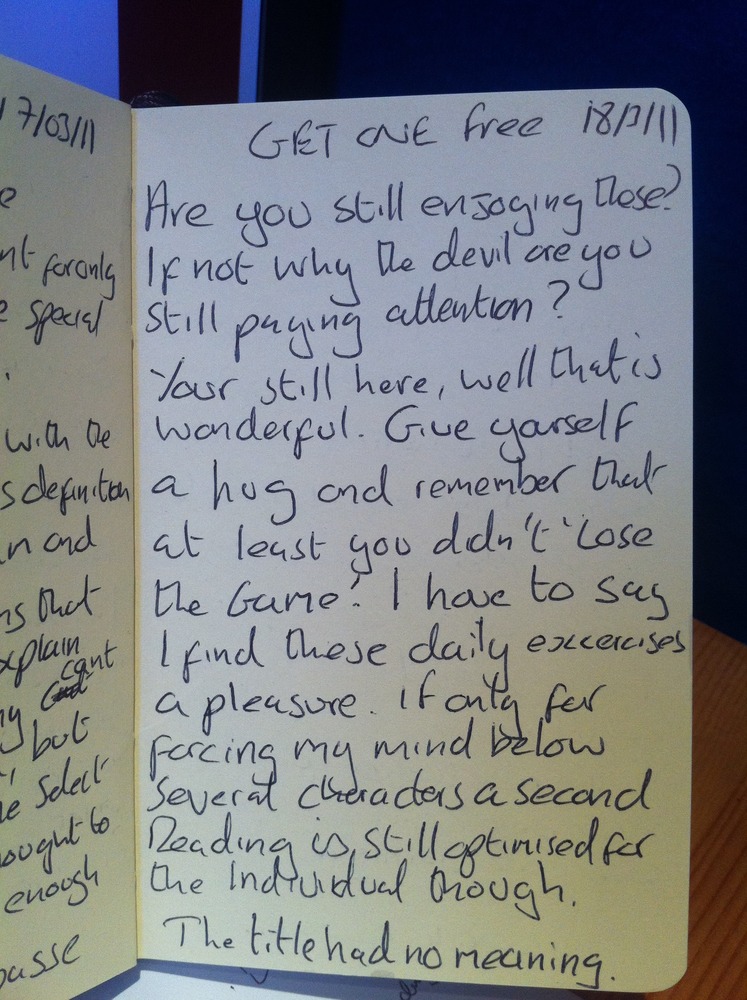 7/03/11
e
nt for only
e special
.
with the
s definition
in and
ns that
explain
cant
ny
but
e select
ought to
enough
passe
GET ONE free 18/3/11
Are you still enjoging these?
If not why the devil are you
still paying attention?
Your still here, well that is
wonderful. Give yourself
a hug and remember that
at least you didn't 'Lose
the Game'. I have to say
I find these daily excercises
a pleasure. If only for
forcing my mind below
several characters a second
Reading is still optimised for
the Individual though.
The title had no meaning.